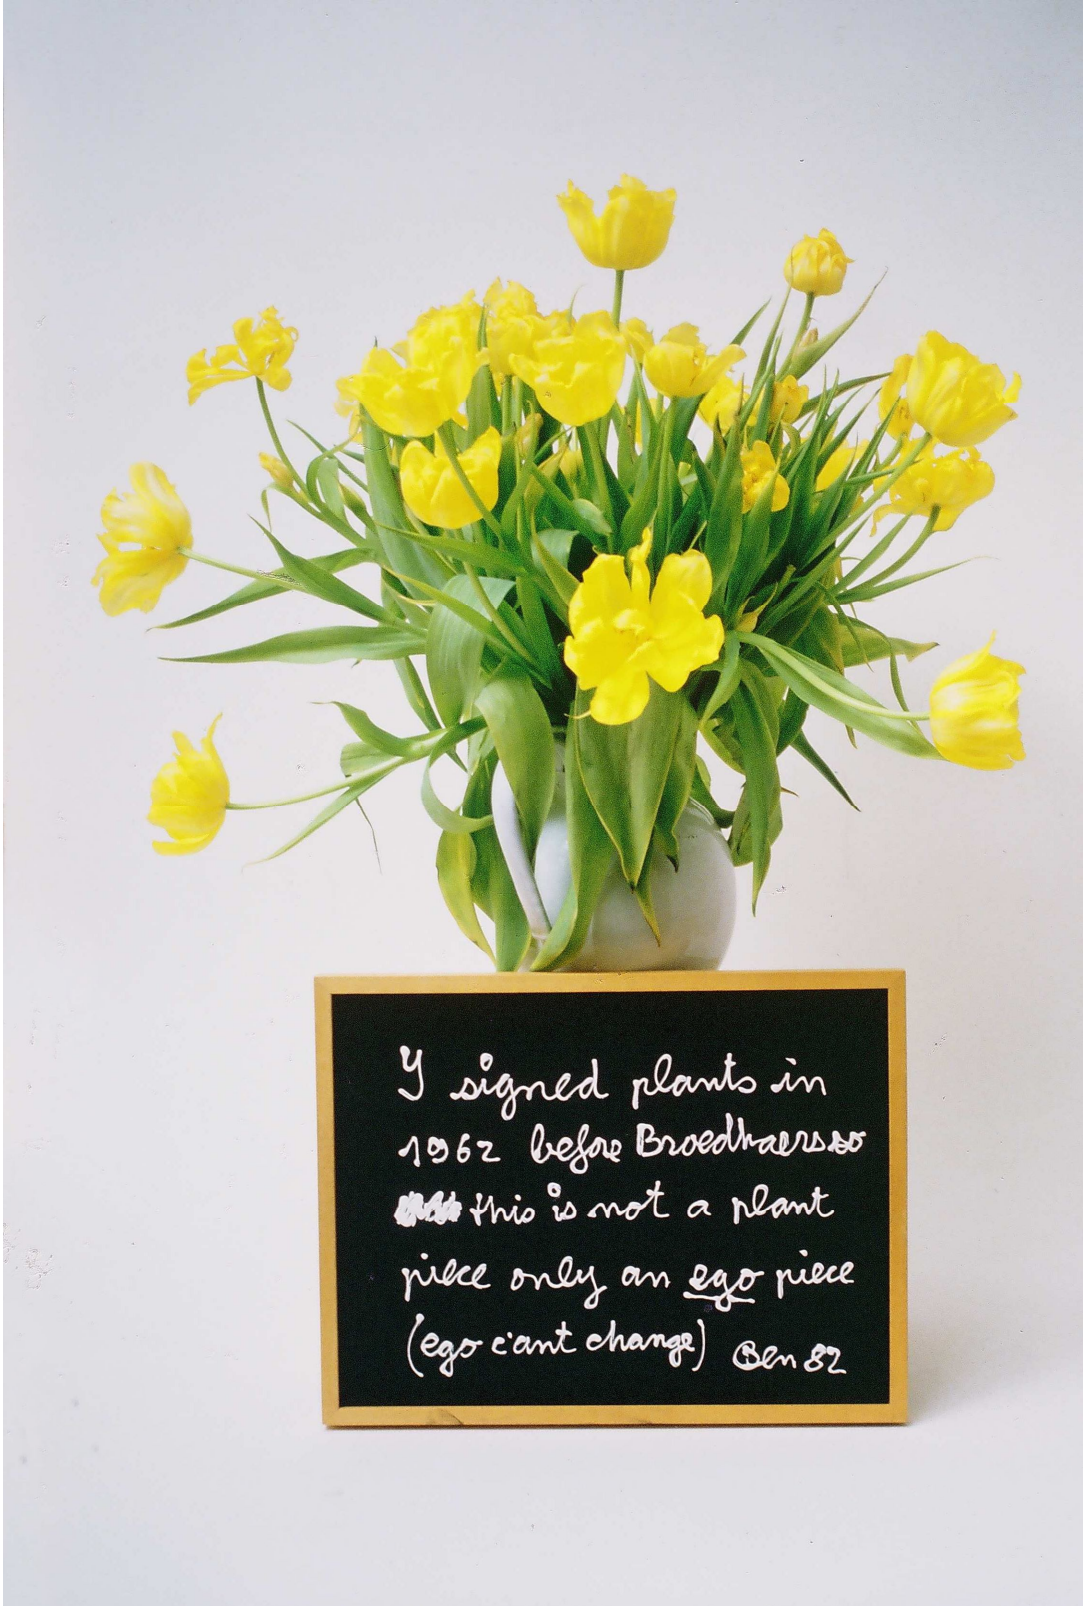 Y signed plants in
1962 before Broedhaers so
this is not a plant
piece only an ego piece
(ego c'ant change) Ben 82